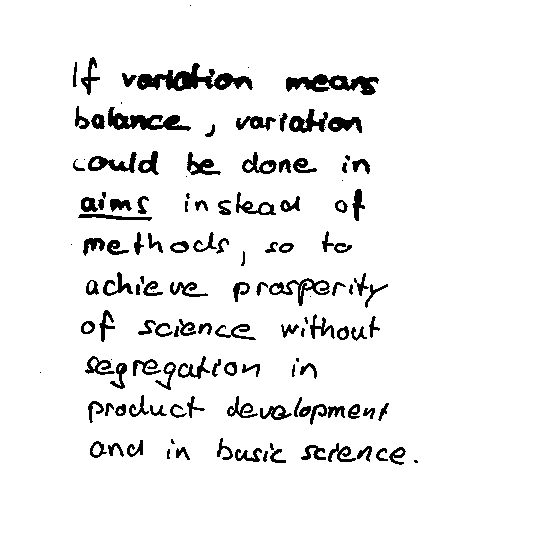 If variation means
balance, variation
could be done in
aims instead of
methods, so to
achieve prosperity
of science without
segregation in
product development
and in basic science.